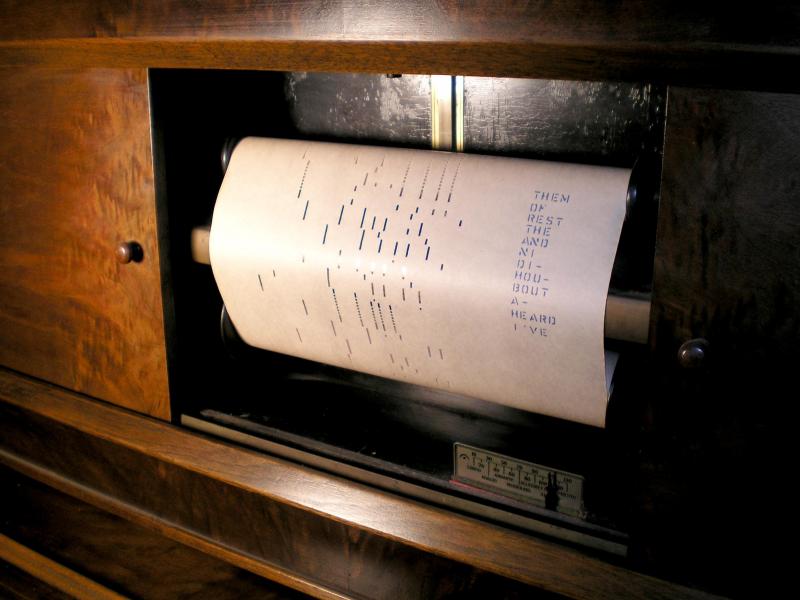 THEM
OF
REST
THE
AND
NI
DI-
HOU-
BOUT
A-
HEARD
I'VE